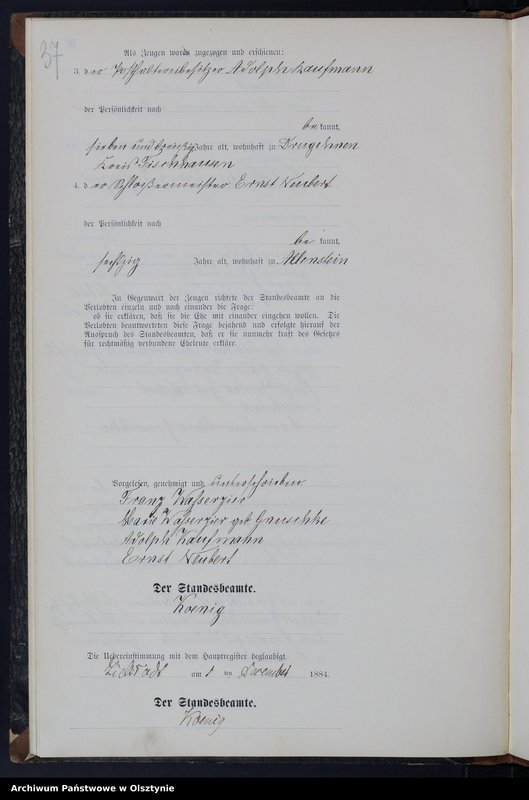 37
Als Zeugen waren zugezogen und erschienen:
3. der Posthaltereibesitzer Adolph Kaufmann
der Persönlichkeit nach
be kannt,
sieben und dreißig Jahre alt, wohnhaft zu Drugehnen
Kreis Fischhausen
4. der Schlossermeister Ernst Neubert
der Persönlichkeit nach
be kannt,
sechzig Jahre alt, wohnhaft zu Allenstein
In Gegenwart der Zeugen richtete der Standesbeamte an die
Verlobten einzeln und nach einander die Frage:
ob sie erklären, daß sie die Ehe mit einander eingehen wollen. Die
Verlobten beantworteten diese Frage bejahend und erfolgte hierauf der
Ausspruch des Standesbeamten, daß er sie nunmehr kraft des Gesetzes
für rechtmäßig verbundene Eheleute erkläre.
Vorgelesen, genehmigt und unterschrieben
Franz Wassergier
Marie Wassergier geb
Adolph Kaufmann
Ernst Neubert
Der Standesbeamte.
Koenig
Die Uebereinstimmung mit dem Hauptregister beglaubigt.
am ten 1884.
Der Standesbeamte.
Koenig
Archiwum Państwowe w Olsztynie